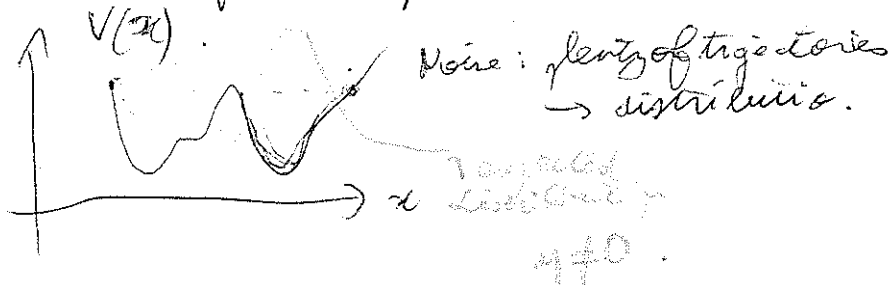 V(x).
Noise: plenty of trajectories
→ distributio.
x
η ≠ 0.